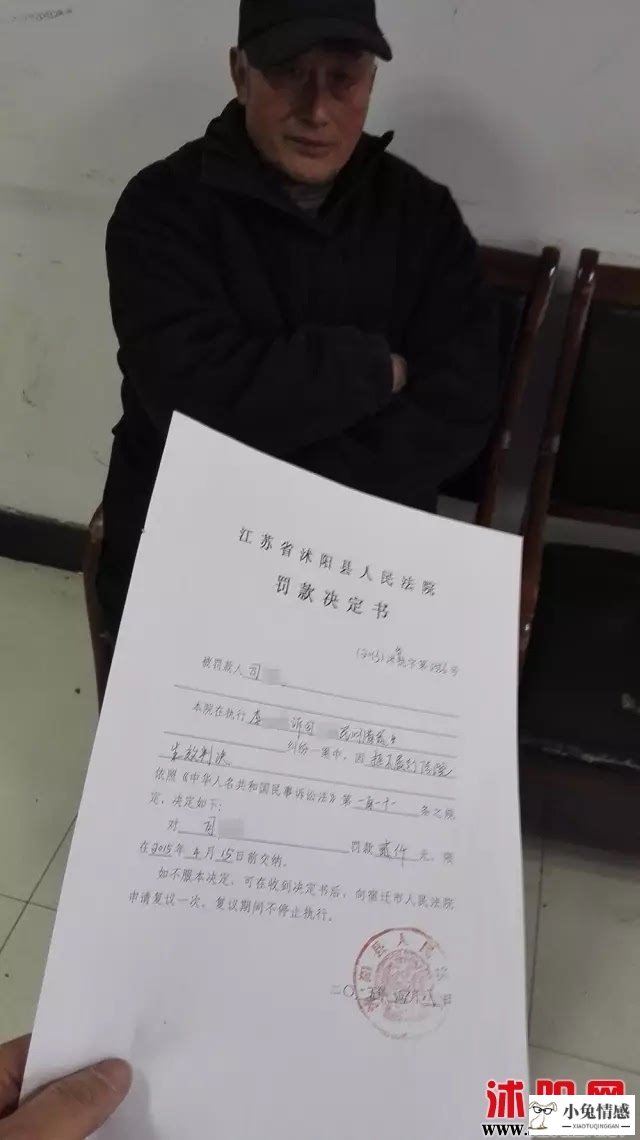 江苏省沭阳县人民法院
罚款决定书
被罚款人 司
本院在执行 诉司 民间借贷
纠纷一案中，因 拒不履行法院
生效判决
依照《中华人名共和国民事诉讼法》第一百一十一条之规
定，决定如下：
对 司 罚款 贰仟 元，限
在2015年4月15日前交纳。
如不服本决定，可在收到决定书后，向宿迁市人民法院
申请复议一次。复议期间不停止执行。
沭阳网
www.
小兔情感
XIAOTUQINGGAN